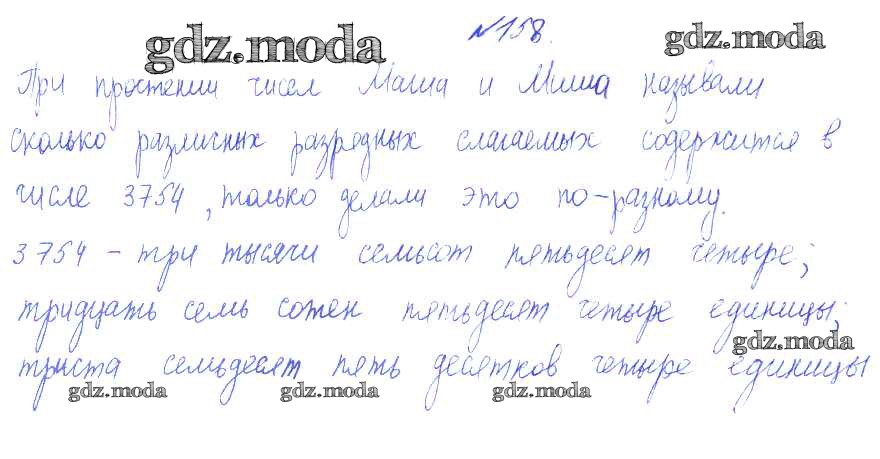 №158.
gdz.moda
gdz.moda
При простении чисел Маша и Миша называли
сколько различных разрядных слагаемых содержится в
числе 3754, только делали это по-разному.
3754 - три тысячи семьсот пятьдесят четыре;
тридцать семь сотен пятьдесят четыре единицы;
gdz.moda
триста семьдесят пять десятков четыре единицы
gdz.moda
gdz.moda
gdz.moda